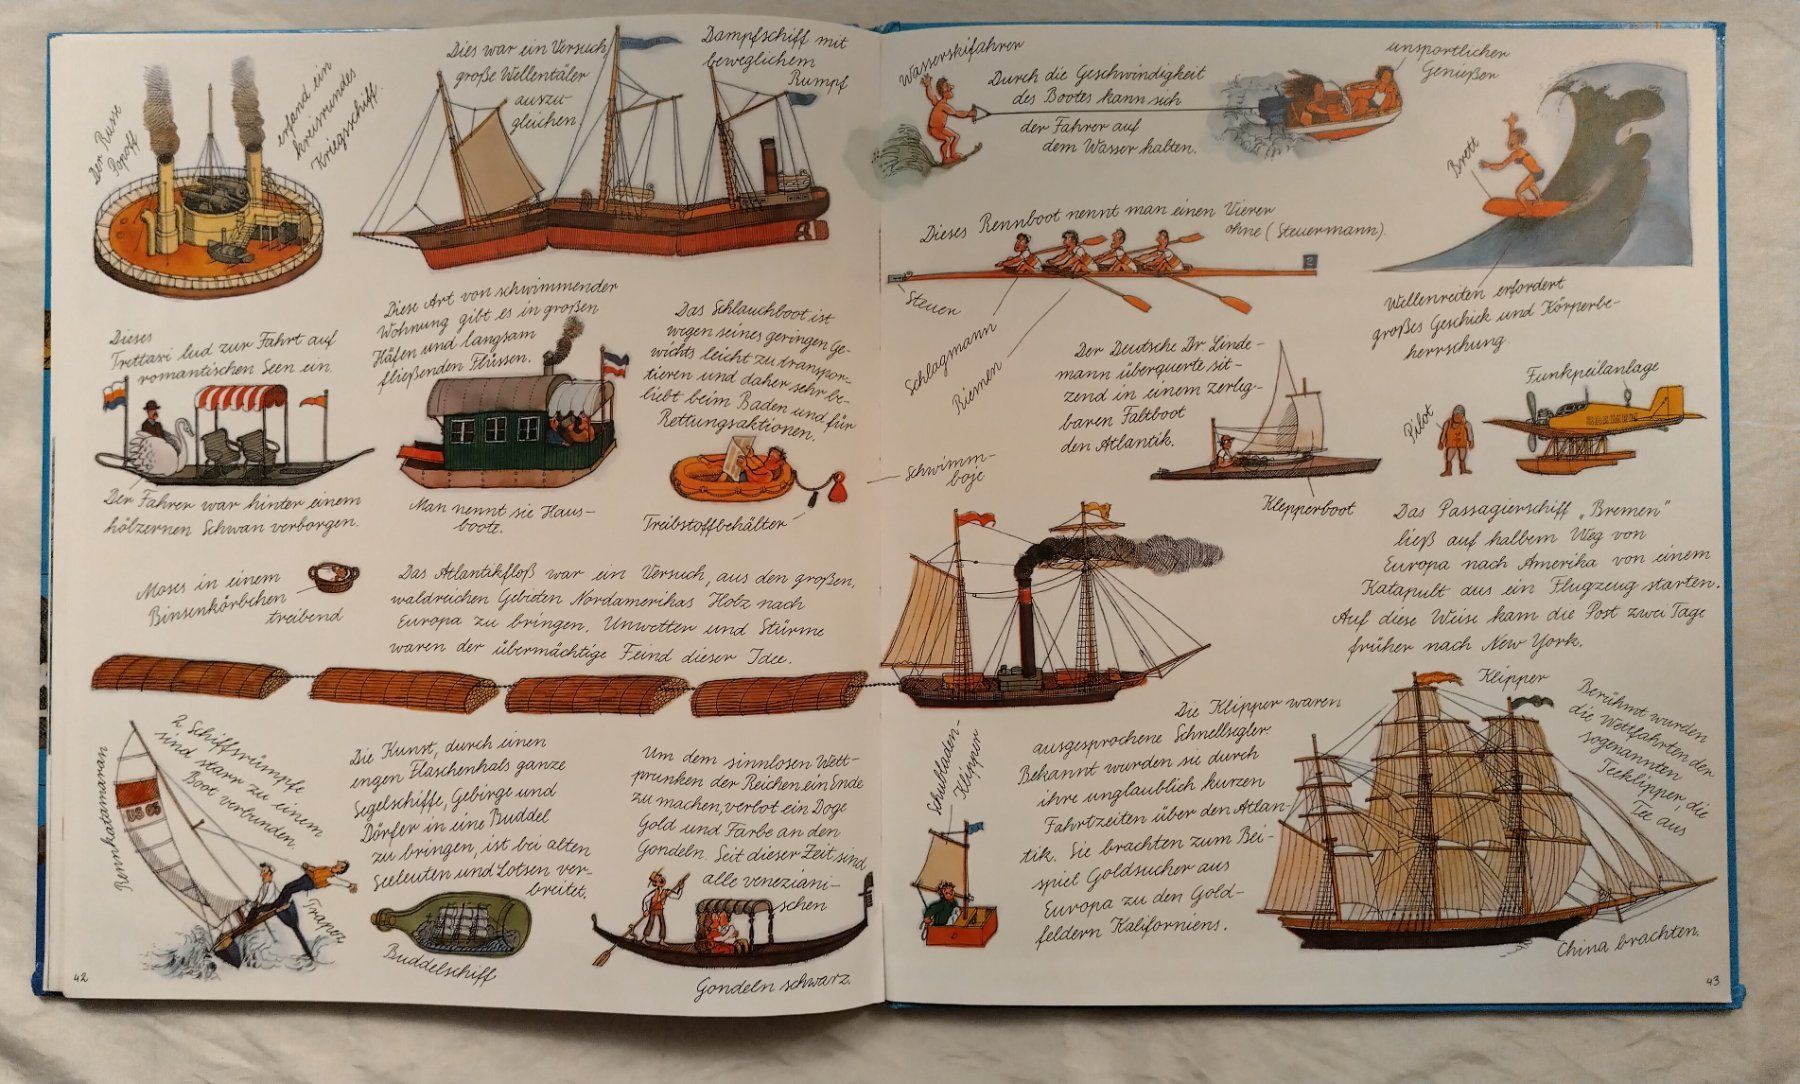 Der Russe
Popoff
erfand ein
kreisrundes
Kriegsschiff.
Dies war ein Versuch
große Wellentäler
auszu
gleichen.
Dampfschiff mit
beweglichem
Rumpf
Dieses
Trettaxi lud zur Fahrt auf
romantischen Seen ein.
Der Fahrer war hinter einem
hölzernen Schwan verborgen.
Diese Art von schwimmender
Wohnung gibt es in großen
Häfen und langsam
fließenden Flüssen.
Man nennt sie Haus-
boote.
Das Schlauchboot ist
wegen seines geringen Ge-
wichts leicht zu transpor-
tieren und daher sehr be-
liebt beim Baden und für
Rettungsaktionen.
Treibstoffbehälter
Schwimm-
boje
Moses in einem
Binsenkörbchen
treibend
Das Atlantikfloß war ein Versuch, aus den großen,
waldreichen Gebieten Nordamerikas Holz nach
Europa zu bringen. Unwetter und Stürme
waren der übermächtige Feind dieser Idee.
Rennkatamaran
2 Schiffsrümpfe
sind starr zu einem
Boot verbunden.
US 65
Trapez
Die Kunst, durch einen
engen Flaschenhals ganze
Segelschiffe, Gebirge und
Dörfer in eine Buddel
zu bringen, ist bei alten
Seeleuten und Lotsen ver-
breitet.
Buddelschiff
Um dem sinnlosen Wett-
prunken der Reichen ein Ende
zu machen, verbot ein Doge
Gold und Farbe an den
Gondeln. Seit dieser Zeit sind
alle veneziani-
schen
Gondeln schwarz.
42
Wasserskifahrer
Durch die Geschwindigkeit
des Bootes kann sich
der Fahrer auf
dem Wasser halten.
unsportlicher
Genießer
Brett
Wellenreiten erfordert
großes Geschick und Körperbe-
herrschung.
Dieses Rennboot nennt man einen Vierer
ohne (Steuermann).
2
Steuer
Schlagmann
Riemen
Der Deutsche Dr Linde-
mann überquerte sit-
zend in einem zerleg-
baren Faltboot
den Atlantik.
Klepperboot
Funkpeilanlage
Pilot
BREMEN
Das Passagierschiff „Bremen"
ließ auf halbem Weg von
Europa nach Amerika von einem
Katapult aus ein Flugzeug starten.
Auf diese Weise kam die Post zwei Tage
früher nach New York.
Schubladen-
Klipper
Die Klipper waren
ausgesprochene Schnellsegler.
Bekannt wurden sie durch
ihre unglaublich kurzen
Fahrtzeiten über den Atlan-
tik. Sie brachten zum Bei-
spiel Goldsucher aus
Europa zu den Gold-
feldern Kaliforniens.
Klipper
Berühmt wurden
die Wettfahrten der
sogenannten
Teeklipper die
Tee aus
China brachten.
43